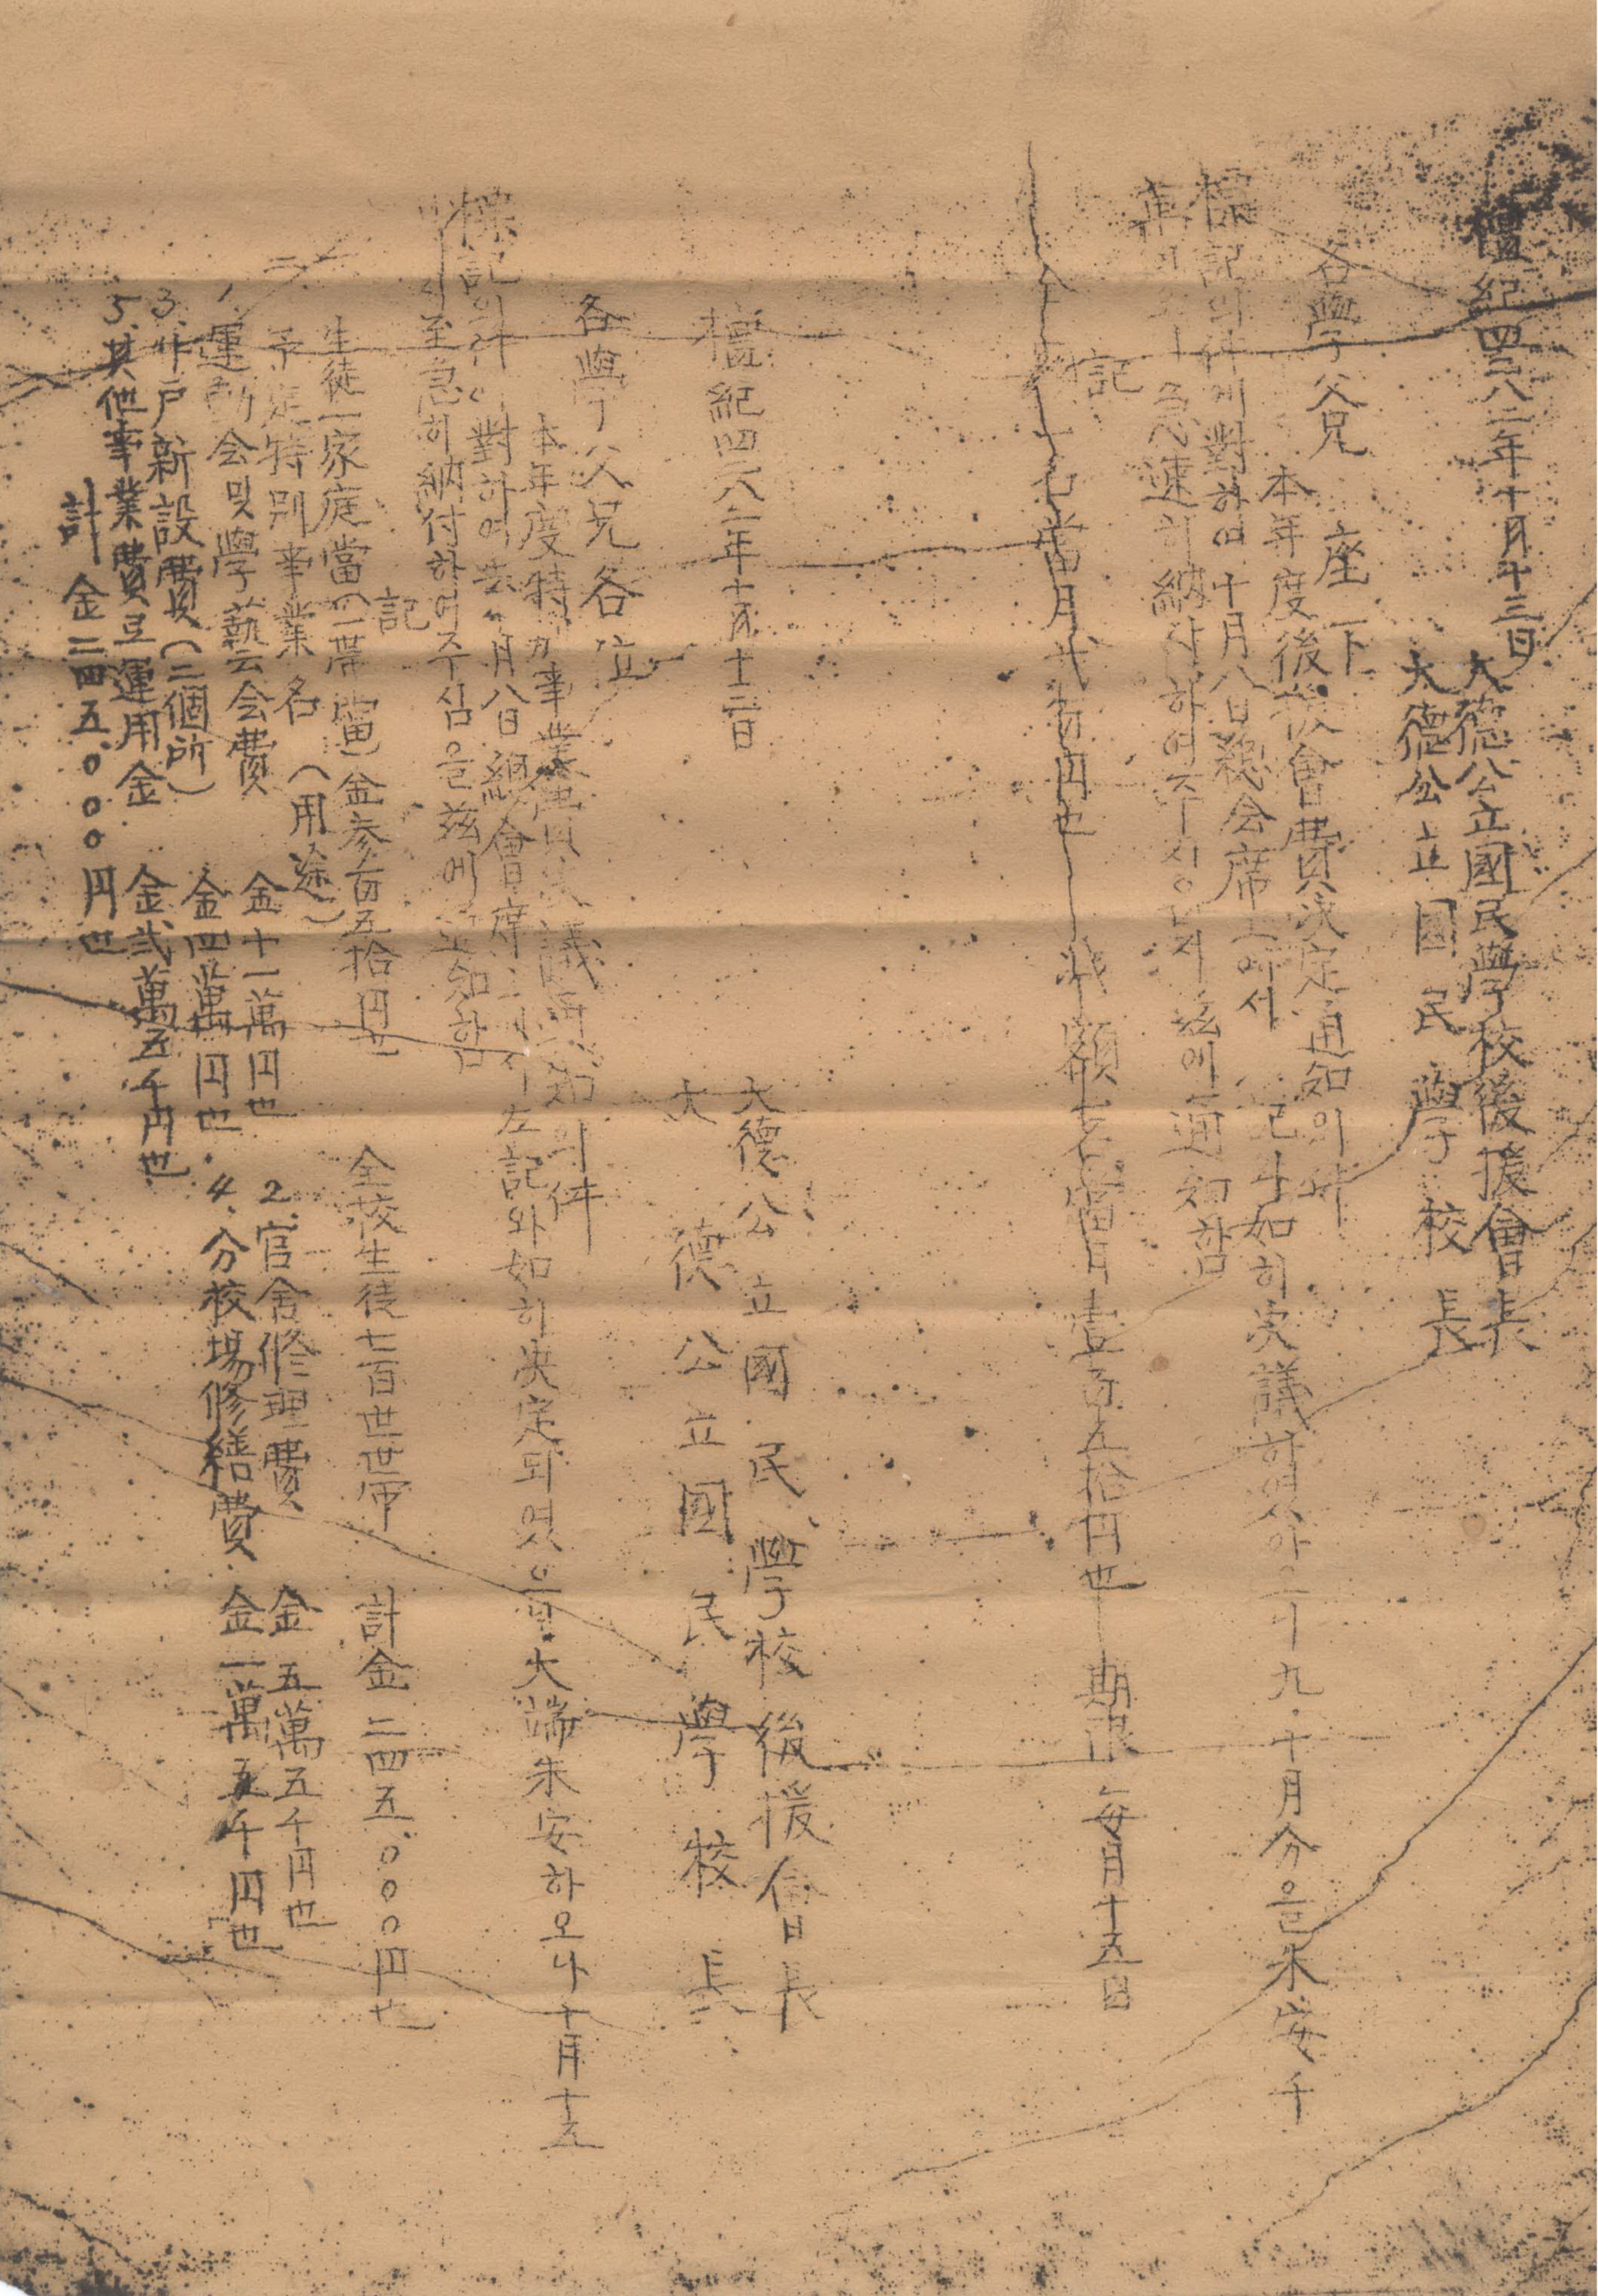 檀紀四二八二年十月十三日
大德公立國民學校後援會長
大德公立國民學校長
各學父兄 座下
本年度後援會費決定通知의件
標記의件에對하여 十月八日總会席上에서 左記와如히決議하였사아오니 九.十月分은未安千
萬이오나 急速히納入하여주시압기玆에通知함
記
當月貳百円也 額 當月壹百五拾円也 期限 每月十五日
檀紀四二八二年十月十三日
大德公立國民學校後援會長
大德公立國民學校長
各學父兄各位
本年度特別事業費 決議通知의件
標記의件에對하여去十月八日總會席上에서左記와如히决定되였은바 大端未安하오나十月十五
日까지至急히納付하여주심을玆에通知함
記
生徒一家庭當(一世帶當)金參百五拾円也 全校生徒七百世世帶 計金二四五.〇〇〇円也
予定特別事業名(用途)
1.運動会및學藝会費 金十一萬円也 2.官舍修理費 金五萬五千円也
3.井戶新設費(二個所) 金四萬円也. 4.分校場修繕費. 金一萬五千円也
5.其他事業費로運用金 金貳萬五千円也
計金二四五.〇〇〇円也